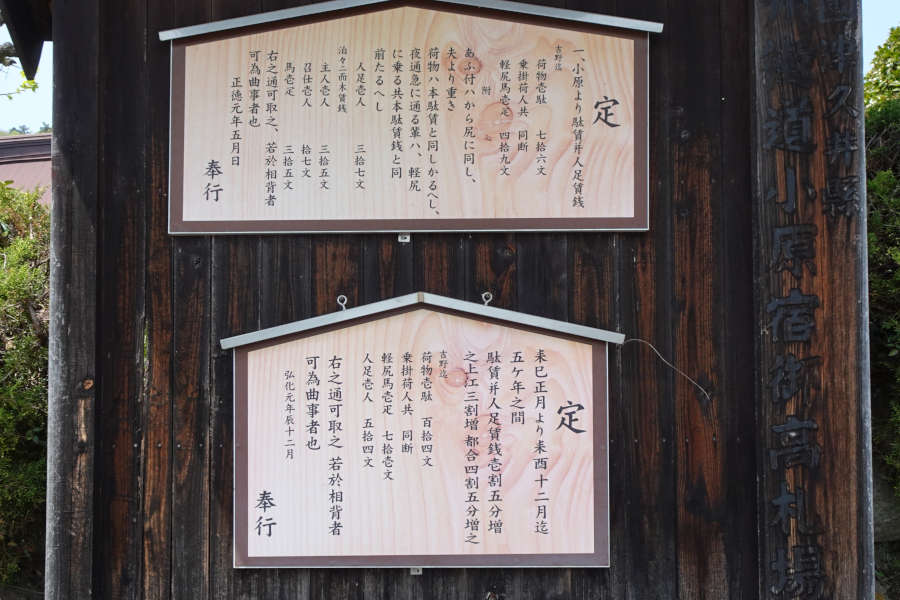 井久井縣
道小原宿
高札場
定
一、小原より駄賃并人足賃銭
吉野迄
荷物壱駄 七拾六文
乗掛荷人共 同断
軽尻馬壱疋 四拾九文
附
あふ付ハから尻に同し、
夫より重き
荷物ハ本駄賃と同しかるへし、
夜通急に通る輩ハ、軽尻
に乗る共本駄賃銭と同
前たるへし
人足壱人 三拾七文
泊々ニ而木賃銭
主人壱人 三拾五文
召仕壱人 拾七文
馬壱疋 三拾五文
右之通可取之、若於相背者
可為曲事者也
正徳元年五月日
奉行
定
来巳正月より来酉十二月迄
五ケ年之間
駄賃并人足賃銭壱割五分増
之上江三割増都合四割五分増之
吉野迄
荷物壱駄 百拾四文
乗掛荷人共 同断
軽尻馬壱疋 七拾壱文
人足壱人 五拾四文
右之通可取之 若於相背者
可為曲事者也
弘化元年辰十二月
奉行